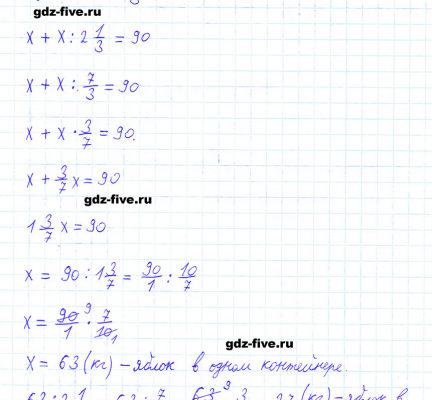 gdz-five.ru
x + x : 2 1/3 = 90
x + x : 7/3 = 90
x + x · 3/7 = 90.
x + 3/7 x = 90
gdz-five.ru
1 3/7 x = 90
x = 90 : 1 3/7 = 90/1 : 10/7
x = 90 9/1 · 7/10 1
gdz-five.ru
x = 63 (кг) – яблок в одном контейнере.